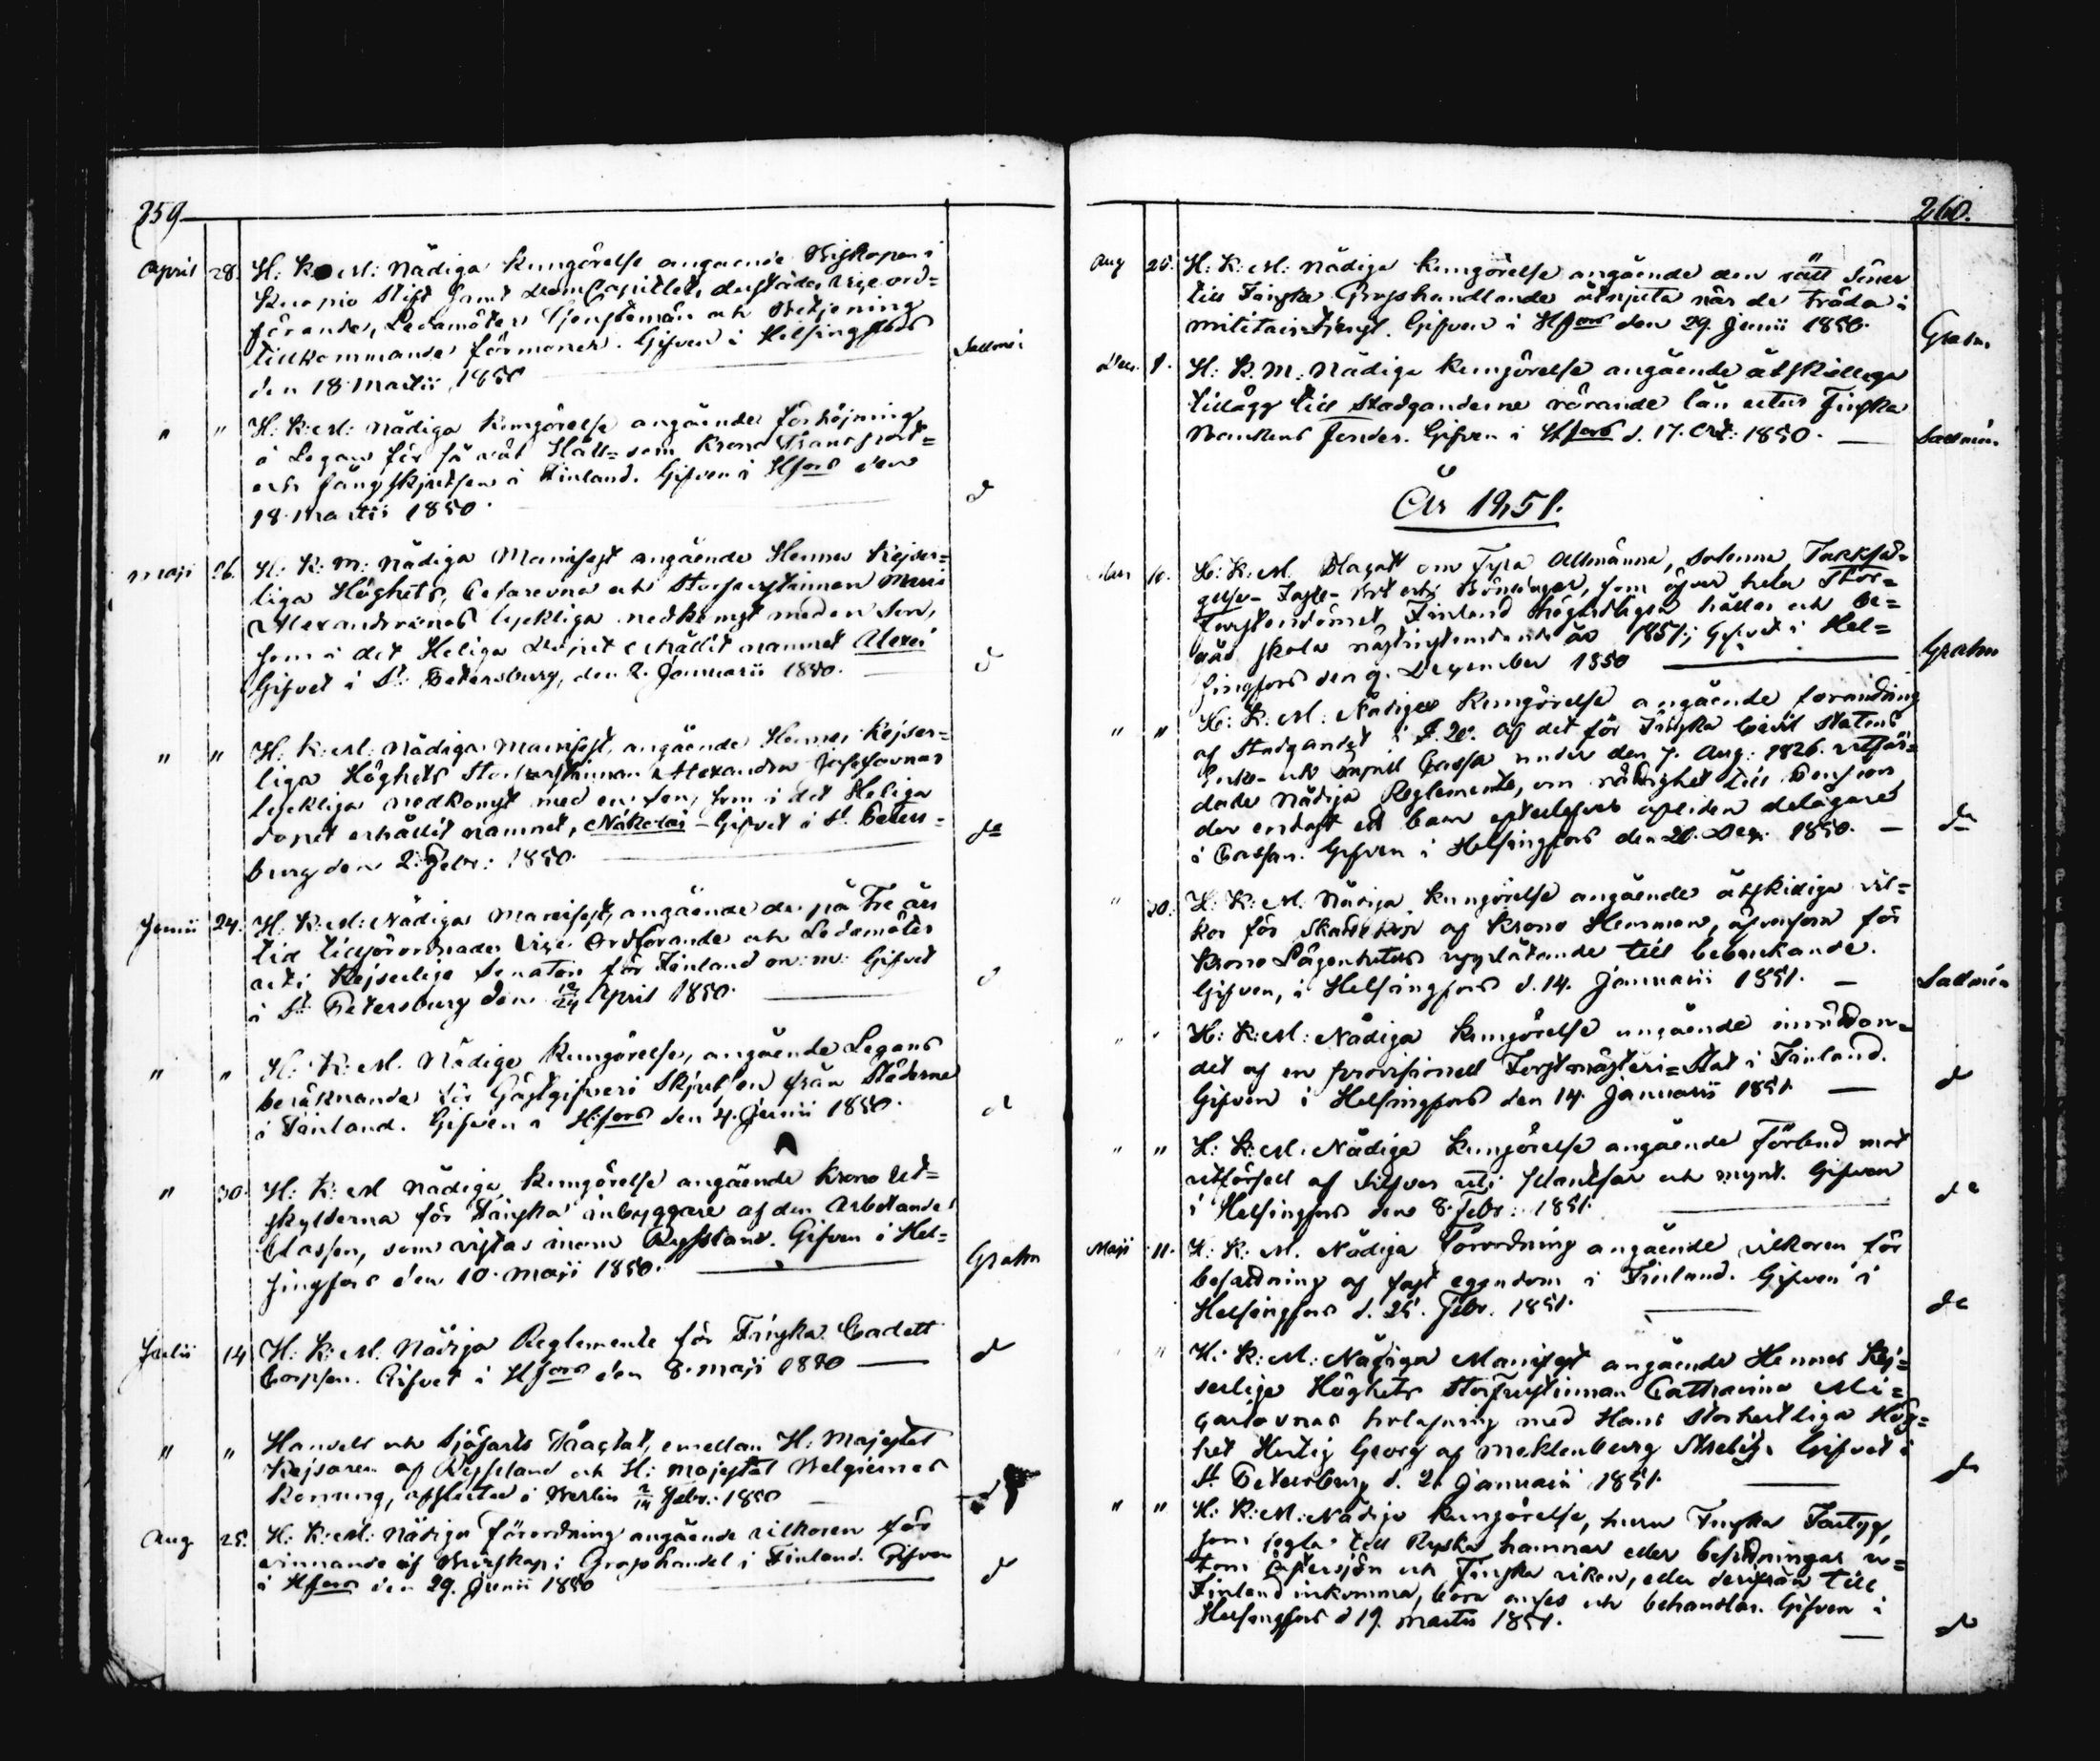 259
April 28. H: K: M: Nådiga Kungörelse angaende Biskopen i
Kuopio Stift samt DomCapitlets, derstädes Vice ord=
förande, Ledamöters Tjenstemän och Betjening
tillkommande förmoner. Gifven i Helsingfors
den 18 Martii 1850 Sallmén
" " H: K: M: Nådiga Kungörelse angående förhöjning
i Legan för så väl Håll= som Krono Transport=
och fångskjutsen i Finland. Gifven i Hfors den
18 Martii 1850. d
Maji 26. H: K: M: Nådiga Manifest angående Hennes Kejser=
liga Höghets, Cesarevna och Storfurstinnan Maria
Alexandrovnas lyckliga nedkomst med en Son,
som i det Heliga Dopet erhållit namnet Alexei
Gifvet i St Petersburg, den 2. Januarii 1850. d
" " H: K: M: Nådiga Manifest, angående Hennes Kejser=
liga Höghets Storfurstinnan Alexandra Josefovnas
lyckliga nedkomst med en Son, som i det Heliga
dopet erhållit namnet, Nikolai - Gifvet i St. Peters=
burg den 2. Febr: 1850. do
Junii 24. H: K: M: Nådiga Manifest, angående de på Tre års
tid tillförordnade Vice Ordförande och Ledamöter
uti Kejserliga Senaten för Finland m: m: Gifvet
i St Petersburg den 12/24 April 1850. d
" " H: K: M. Nådiga Kungörelse, angående Legans
beräknande för Gästgifveri Skjutsen från Städerne
i Finland. Gifven i Hfors den 4. Junii 1850. d
" 30. H: K: M Nådiga Kungörelse angående Krono Ut=
skylderna för Finska inbyggare af den Arbetande
Classen, som vistas inom Ryssland. Gifven i Hel=
singfors den 10. Maji 1850. Grahn
Julii 14 H: K: M: Nådiga Reglemente för Finska Cadett
Corpsen. Gifvet i Hfors den 8. Maji 1850 d
" " Handels och Sjöfarts Tractat, emellan H: Majestet
Kejsaren af Ryssland och H: Majestät Belgiernas
Konung, afslutad i Berlin 2/14 Febr: 1850 d
Aug 25. H: K: M: Nådiga Förordning angående vilkoren för
vinnande af Burskap i Grosshandel i Finland. Gifven
i Hfors den 29. Junii 1850 d
260.
Aug 25. H: K: M: Nådiga Kungörelse angående den rätt Söner
till Finska Grosshandlande åtnjuta när de träda i
militairtjenst. Gifven i Hfors den 29. Junii 1850. Grahn
Dec. 1. H: K. M: Nådiga Kungörelse angående åtskillige
tillägg till Stadganderne rörande lån utur Finska
Bankens fonder. Gifven i Hfors d. 17. Oct: 1850. Sallmén
År 1851.
10. H: K: M. Placat om Fyra Allmänna, Solenna, Tacksä=
gelse- Faste- Bot och Bönedagar, som öfver hela Stor=
furstendömet Finland högtidligen hållas och be=
gås skola nästinstundande år 1851; Gifvet i Hel=
singfors den 9. December 1850 Grahn
" " H: K: M: Nådiga Kungörelse angående förändring
af Stadgandet i §. 20. af det för Finska Civil Statens
Enke- och Pupill Cassa under den 7. Aug: 1826. utfär=
dade Nådiga Reglemente, om rättighet till Pension
der endast ett barn efterlefver afliden delägare
i Cassan. Gifven i Helsingfors den 20. Dec: 1850. do
" 30. H: K: M. Nådiga Kungörelse angående åtskidiga vil=
kor för Skatteköp af Krono Hemman, äfvensom för
Krono Lägenheters upplåtande till bebyggande.
Gifven, i Helsingfors d. 14. Januarii 1851. Sallmén
" " H: K: M: Nådiga Kungörelse angående inrättan=
det af en provisionell Forstmästeri=Stat i Finland.
Gifven i Helsingfors den 14. Januarii 1851 d
" " H: K: M: Nådiga Kungörelse angående Förbud mot
utförsel af Silfver uti Plantsar och mynt. Gifven
i Helsingfors den 8. Febr: 1851. do
Maji 11. H: K: M. Nådiga Förordning angående vilkoren för
besittning af fast egendom i Finland. Gifven i
Helsingfors d. 25. Febr. 1851. do
" H: K: M: Nådiga Manifest angående Hennes Kej=
serliga Höghets Storfurstinnan Catharina Mi=
chailovnas trolofning med Hans Storhertliga Hög=
het Hertig Georg af Meklenburg Strelitz. Gifvet i
St. Petersburg d. 21. Januarii 1851. do
" " H: K: M: Nådiga Kungörelse, huru Finska Fartyg,
som segla till Ryska hamnar eller besittningar u=
tom Östersjön och Finska viken, eller derifrån till
Finland inkomma, böra anses och behandlas. Gifven i
Helsingfors d 19. Martii 1851. do